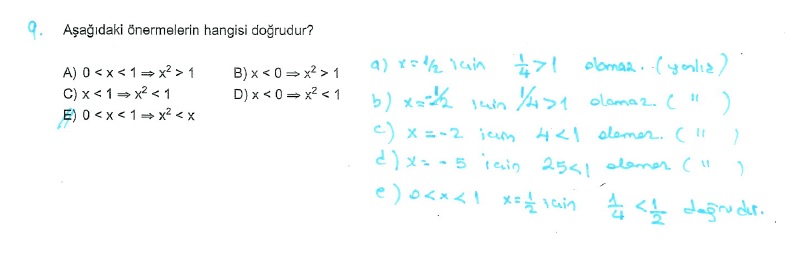 9. Aşağıdaki önermelerin hangisi doğrudur?
A) 0 < x < 1 ⇒ x² > 1 B) x < 0 ⇒ x² > 1
C) x < 1 ⇒ x² < 1 D) x < 0 ⇒ x² < 1
E) 0 < x < 1 ⇒ x² < x
a) x = 1/2 için 1/4 > 1 olamaz. (yanlış)
b) x = -1/2 için 1/4 > 1 olamaz. ( " )
c) x = -2 için 4 < 1 olamaz. ( " )
d) x = -5 için 25 < 1 olamaz ( " )
e) 0 < x < 1 x = 1/2 için 1/4 < 1/2 doğrudur.